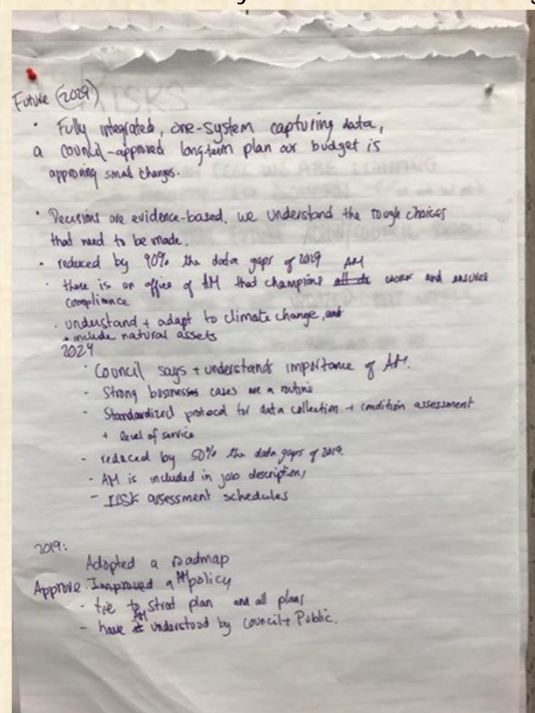 RISKS
Future (2029)
• Fully integrated, one-system capturing data,
a council-approved long-term plan our budget is
approving small changes.
• Decisions are evidence-based, we understand the tough choices
that need to be made.
• reduced by 90% the data gaps of 2019
• there is an office of AM that champions AM work and ensures
compliance
• understand + adapt to climate change, and
+ include natural assets
2024
- Council says + understands importance of AM.
- Strong business cases are a routine
- Standardized protocol for data collection + condition assessment
+ level of service
- reduced by 50% the data gaps of 2019
- AM is included in job description,
- RISK assessment schedules
2019:
Adopted a roadmap
Approve Improved a AM policy
- tie to strat plan and all plans
- have AM understood by council + Public.